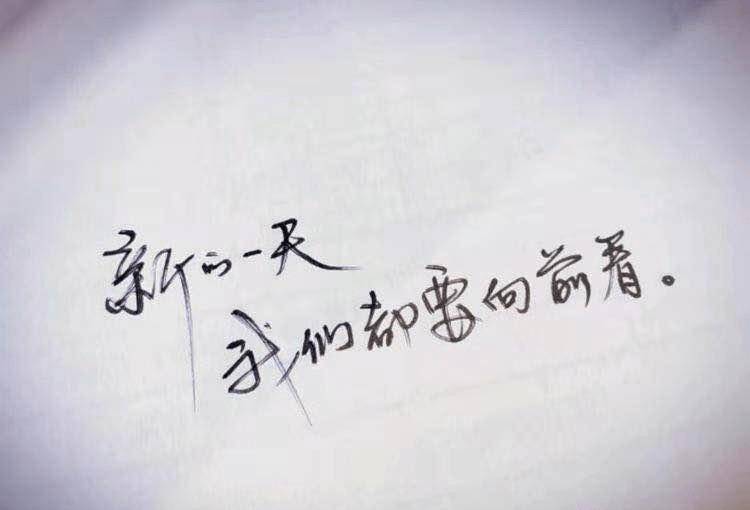 新的一天
我们都要向前看。